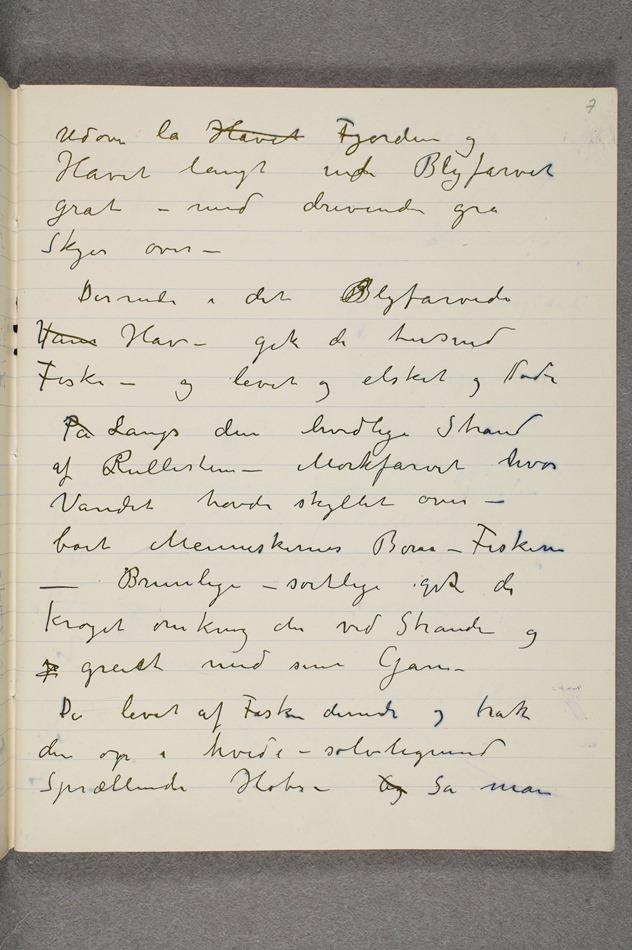 7
Udover la Havet Fjorden og
Havet langt inde Blyfarvet
grat – med drivende gra
Skyer over –
Dernede i det Blyfarvede
Hav – gik de tusend
Fiske – og levet og elsket og Døde
På Langs den hvidlige Strand
af Rullesten – Mørkfarvet hvor
Vandet havde skyllet over –
bort Menneskernes Fiskere
– Brunlige – sortlige gik de
kroget omkring der ved Stranden og
greiet med sine Garn –
De levet af Fiskene dernede og trak
dem op i hvide – sølvlignend
Sprællende Hobe – Og Sa man